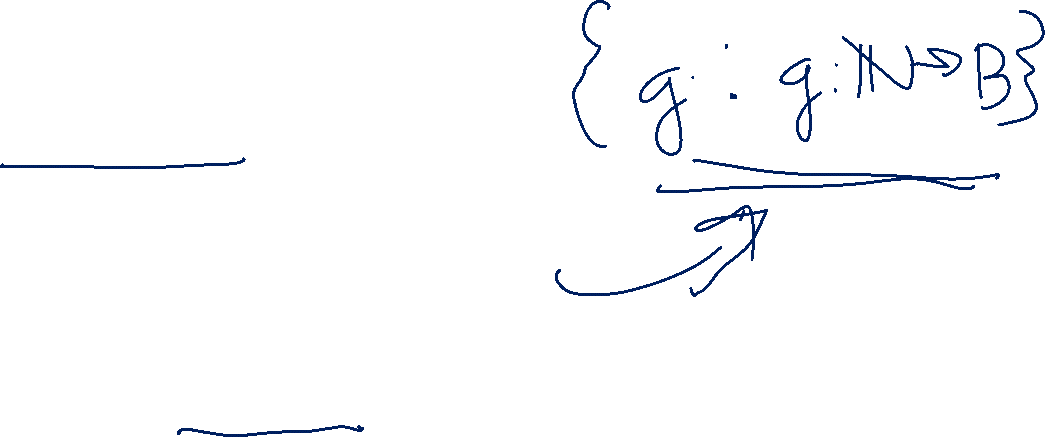 {g : g: ℕ → B}